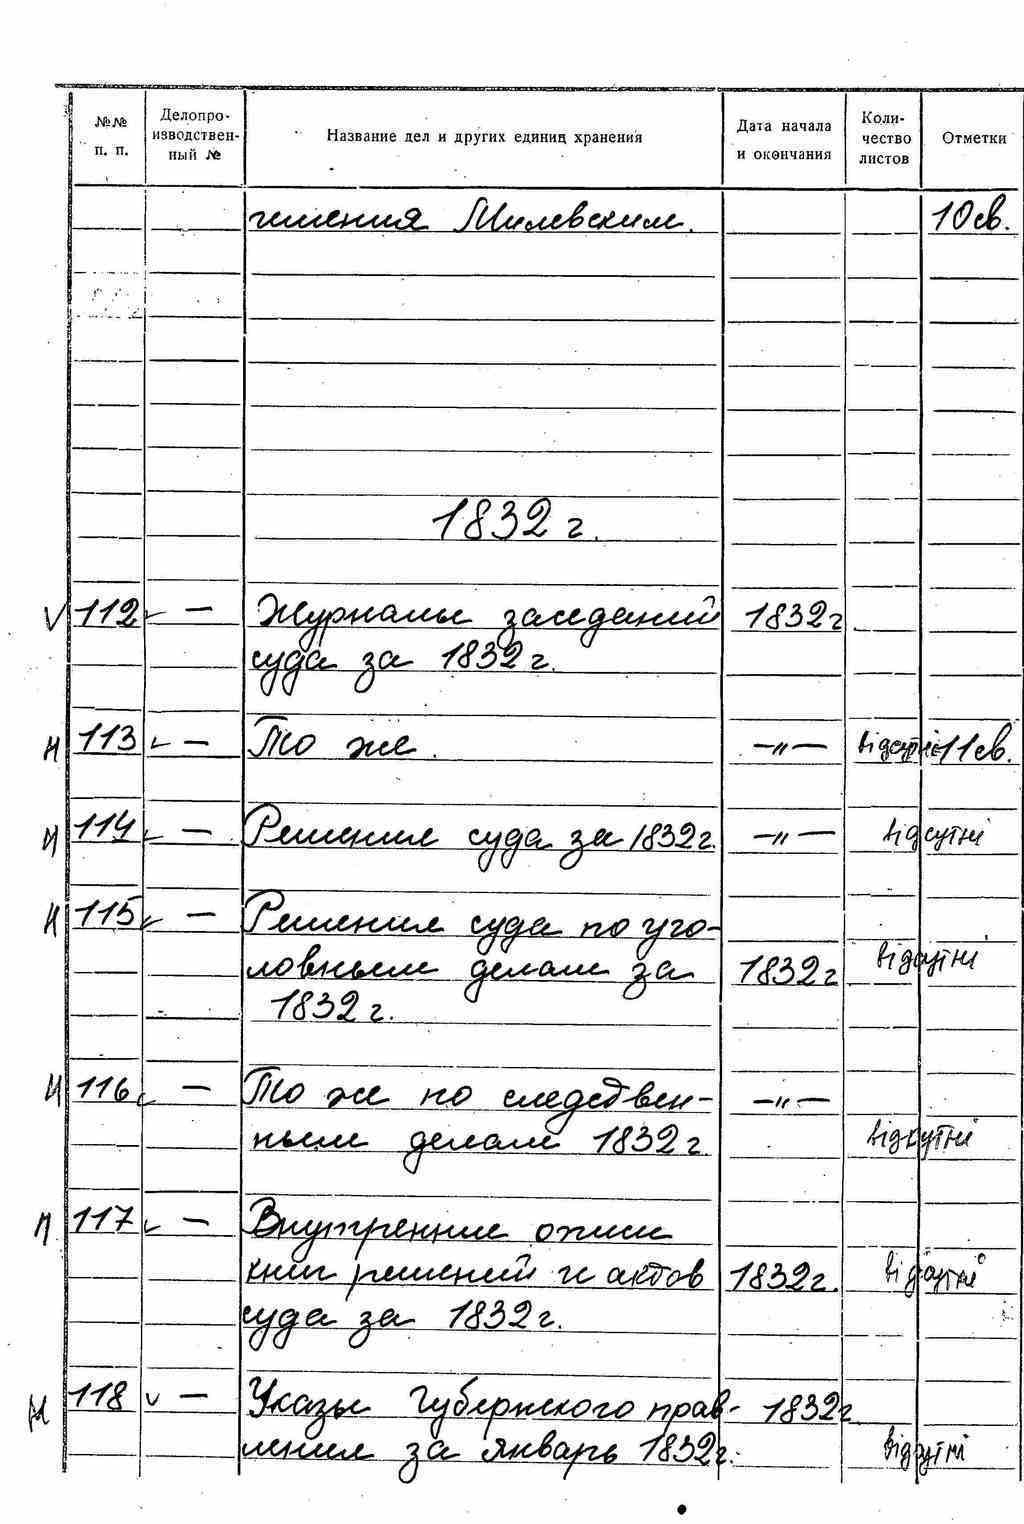 №№ п. п. Делопроизводственный № Название дел и других единиц хранения Дата начала и окончания Количество листов Отметки
чшения Милевским. 10 св.
1832 г.
V 112 ✓ — Журналы заседаний 1832 г
суда за 1832 г.
н 113 ✓ — То же. —"— відсутні 11 св.
н 114 ✓ — Решения суда за 1832 г. —"— відсутні
н 115 ✓ — Решения суда по уго-
ловным делам за 1832 г відсутні
1832 г.
н 116 ✓ — То же по следствен- —"—
ным делам 1832 г. відсутні
н 117 ✓ — Внутренние описи
книг решений и актов 1832 г. відсутні
суда за 1832 г.
н 118 ✓ — Указы Губернского прав- 1832 г
ления за январь 1832 г. відсутні